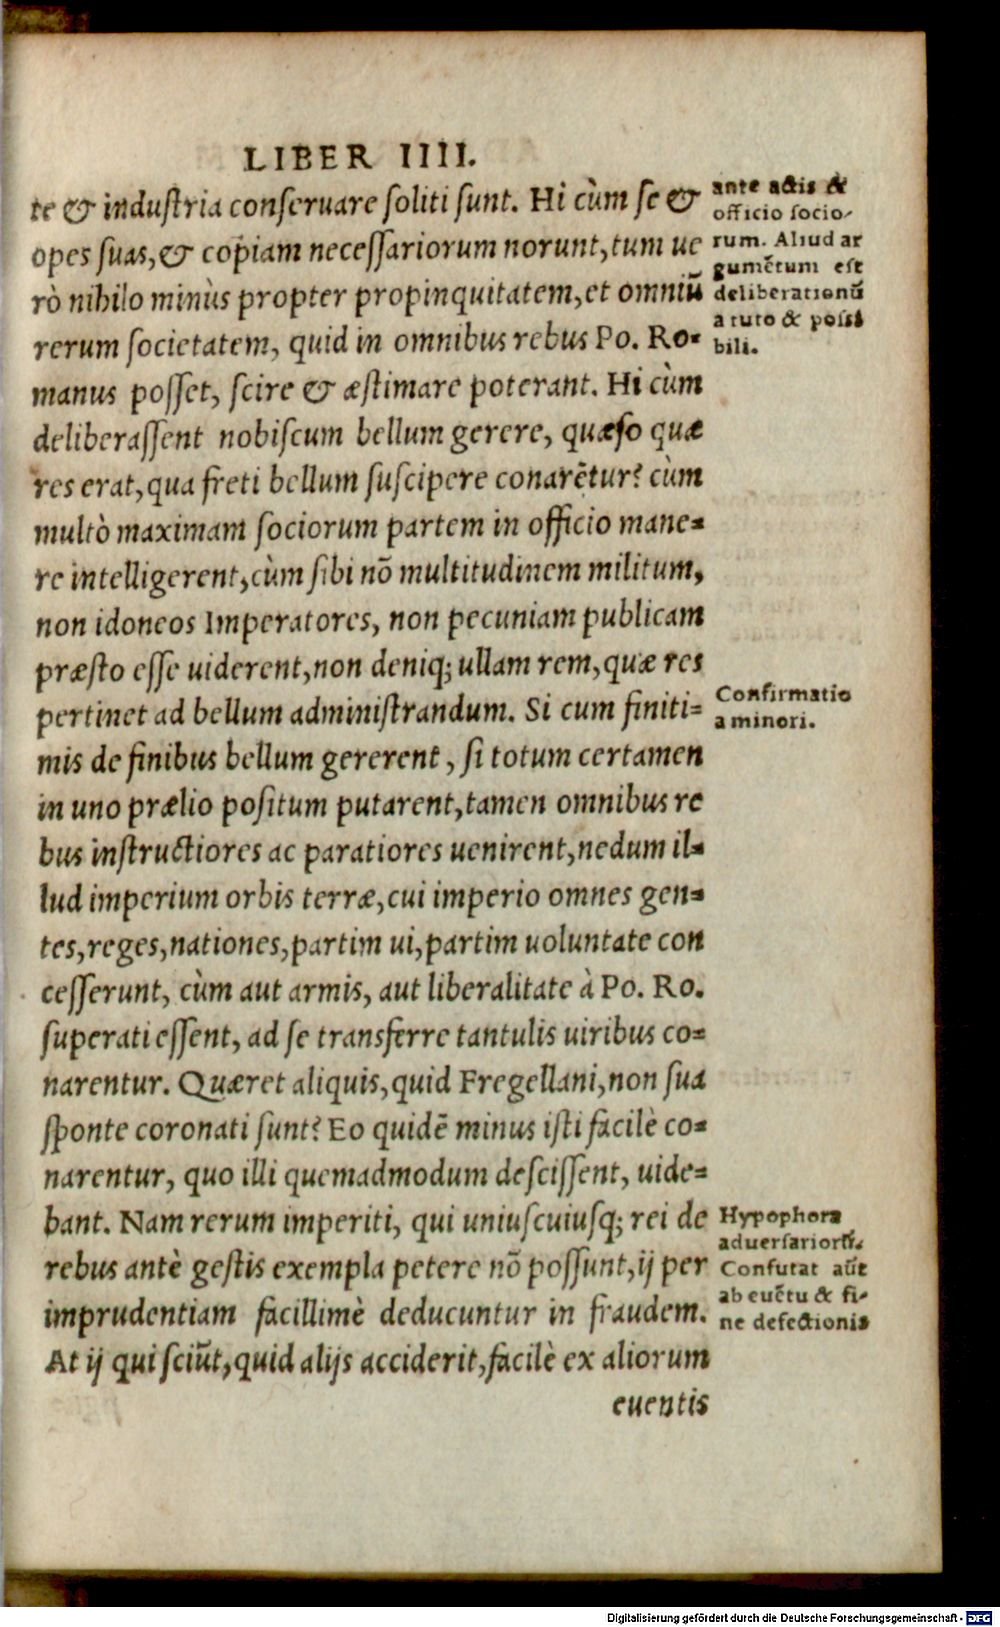 LIBER IIII.
te & industria conseruare soliti sunt. Hi cùm se &
opes suas, & copiam necessariorum norunt, tum ue
rò nihilo minùs propter propinquitatem, et omniũ
rerum societatem, quid in omnibus rebus Po. Ro-
manus posset, scire & æstimare poterant. Hi cùm
deliberassent nobiscum bellum gerere, quæso quæ
res erat, qua freti bellum suscipere conarẽtur? cùm
multò maximam sociorum partem in officio mane-
re intelligerent, cùm sibi nõ multitudinem militum,
non idoneos Imperatores, non pecuniam publicam
præsto esse uiderent, non deniq; ullam rem, quæ res
pertinet ad bellum administrandum. Si cum finiti-
mis de finibus bellum gererent, si totum certamen
in uno prælio positum putarent, tamen omnibus re
bus instructiores ac paratiores uenirent, nedum il-
lud imperium orbis terræ, cui imperio omnes gen-
tes, reges, nationes, partim ui, partim uoluntate con
cesserunt, cùm aut armis, aut liberalitate à Po. Ro.
superati essent, ad se transferre tantulis uiribus co-
narentur. Quæret aliquis, quid Fregellani, non sua
sponte coronati sunt? Eo quidẽ minus isti facilè co-
narentur, quo illi quemadmodum descissent, uide-
bant. Nam rerum imperiti, qui uniuscuiusq; rei de
rebus antè gestis exempla petere nõ possunt, ij per
imprudentiam facillimè deducuntur in fraudem.
At ij qui sciũt, quid alijs acciderit, facilè ex aliorum
euentis
ante actis &
officio socio-
rum. Aliud ar
gumẽtum est
deliberationũ
a tuto & possi
bili.
Confirmatio
a minori.
Hypophora
aduersariorũ.
Confutat aũt
ab euẽtu & fi-
ne defectionis
Digitalisierung gefördert durch die Deutsche Forschungsgemeinschaft - DFG